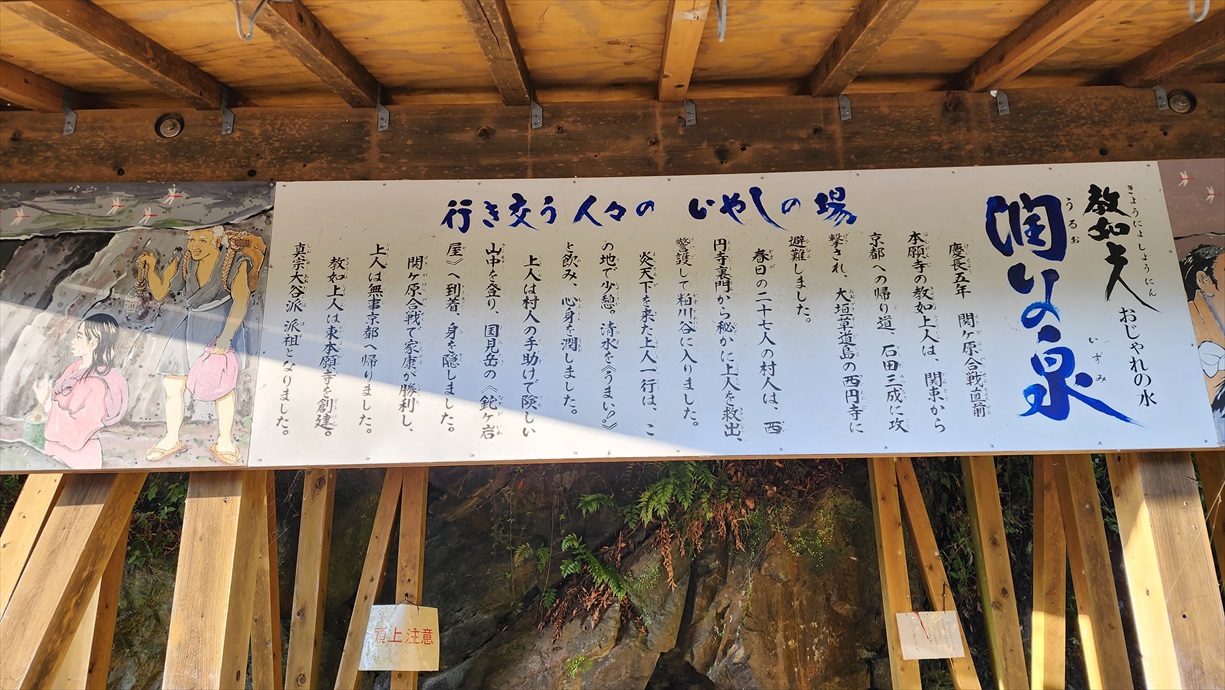 教如上人
きょうにょしょうにん
おじゃれの水
潤いの泉
うるお
いずみ
行き交う人々の いやしの場
慶長五年 関ケ原合戦直前
本願寺の教如上人は、関東から
京都への帰り道、石田三成に攻
撃され、大垣草道島の西円寺に
避難しました。
春日の二十七人の村人は、西
円寺裏門から秘かに上人を救出、
警護して粕川谷に入りました。
炎天下を来た上人一行は、こ
の地で少憩。清水を《うまい?》
と飲み、心身を潤しました。
上人は村人の手助けで険しい
山中を登り、国見岳の《鉈ケ岩
屋》へ到着、身を隠しました。
関ケ原合戦で家康が勝利し、
上人は無事京都へ帰りました。
教如上人は東本願寺を創建。
真宗大谷派 派祖となりました。
頭上注意